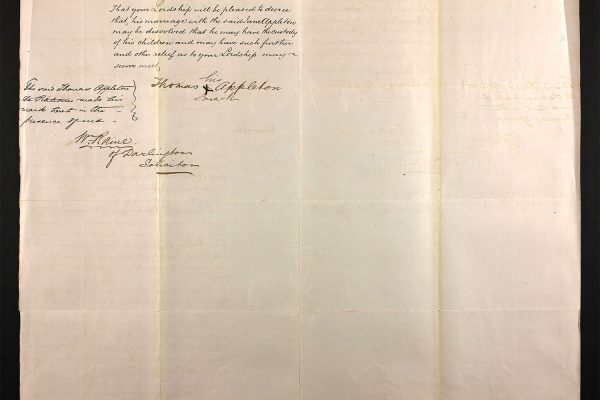 That your Lordship will be pleased to decree
that his marriage with the said Jane Appleton
may be dissolved that he may have the custody
of his children and may have such further
and other relief as to your Lordship may
seem meet
his
Thomas X Appleton
mark
The said Thomas Appleton
the Petitioner made his
mark hereto in the
presence of me
Wm Raine
of Darlington
Solicitor